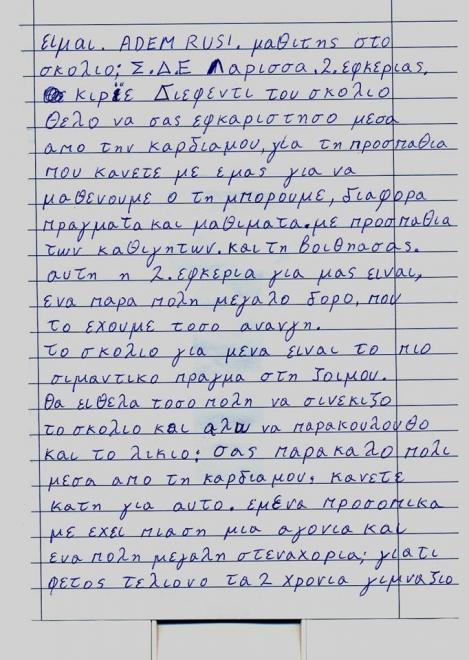 ειμαι. ADEM RUSI. μαθιτης στο
σκολιο; Σ.Δ.Ε Λαρισσα.2.εφκεριας.
κιρϊε Διεφεντι του σκολιο
θελο να σας εφκαριστησο μεσα
απο την καρδιαμου, για τη προσπαθια
που κανετε με εμας για να
μαθενουμε ο τη μπορουμε, διαφορα
πραγματα και μαθιματα. με προσπαθια
των καθιγητων. και τη βοιθησας.
αυτη η 2. εφκερια για μας ειναι,
ενα παρα πολη μεγαλο δορο, που
το εχουμε τοσο ανανγη.
το σκολιο για μενα ειναι το πιο
σιμαντικο πραγμα στη ζοιμου.
θα ειθελα τοσο πολη να σινεκιζο
το σκολιο και αλω να παρακουλουθο
και το λικιο; σας παρακαλο πολι
μεσα απο τη καρδιαμου, κανετε
κατη για αυτο. εμενα προσοπικα
με εχει πιαση μια αγονια και
ενα πολη μεγαλη στεναχορια; γιατι
φετος τελιονο τα 2 χρονια γιμναζιο